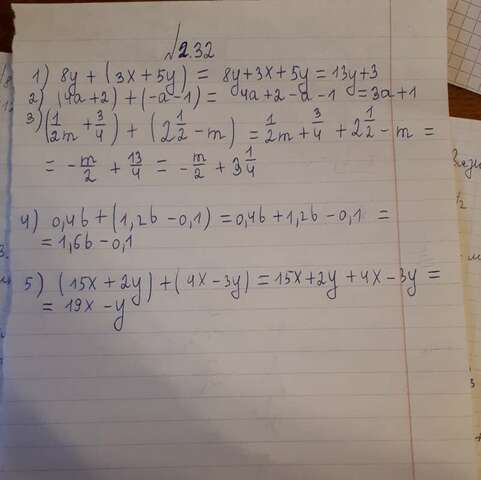 №2.32
1) 8y + (3x + 5y) = 8y+3x+5y = 13y+3
2) (4a+2) + (-a-1) = 4a+2-a-1 = 3a+1
3) (1/2m + 3/4) + (2 1/2 - m) = 1/2m + 3/4 + 2 1/2 - m =
= - m/2 + 13/4 = - m/2 + 3 1/4
4) 0,4b + (1,2b - 0,1) = 0,4b + 1,2b - 0,1 =
= 1,6b - 0,1
5) (15x + 2y) + (4x - 3y) = 15x + 2y + 4x - 3y =
= 19x - y